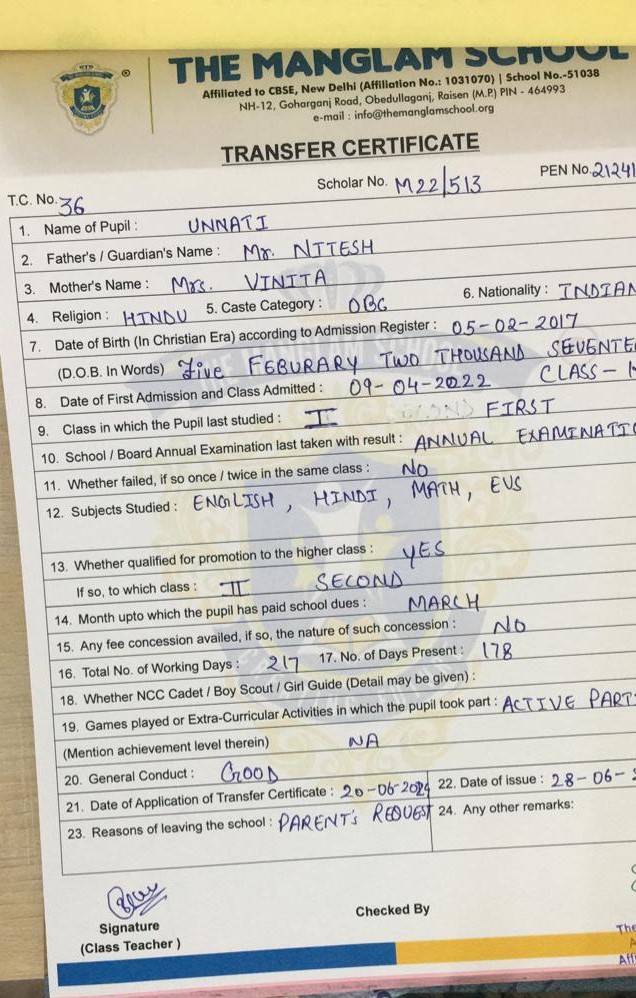 THE MANGLAM SCHOOL
Affiliated to CBSE, New Delhi (Affiliation No.: 1031070) | School No.-51038
NH-12, Goharganj Road, Obedullaganj, Raisen (M.P.) PIN - 464993
e-mail : info@themanglamschool.org
TRANSFER CERTIFICATE
T.C. No. 36 Scholar No. M22/513 PEN No. 21241
1. Name of Pupil : UNNATI
2. Father's / Guardian's Name : Mr. NITESH
3. Mother's Name : Mrs. VINITA
4. Religion : HINDU 5. Caste Category : OBC 6. Nationality : INDIAN
7. Date of Birth (In Christian Era) according to Admission Register : 05-02-2017
(D.O.B. In Words) Five FEBURARY TWO THOUSAND SEVENTE
8. Date of First Admission and Class Admitted : 09-04-2022 CLASS-
9. Class in which the Pupil last studied : I FIRST
10. School / Board Annual Examination last taken with result : ANNUAL EXAMINATIO
11. Whether failed, if so once / twice in the same class : NO
12. Subjects Studied : ENGLISH, HINDI, MATH, EVS
13. Whether qualified for promotion to the higher class : YES
If so, to which class : II SECOND
14. Month upto which the pupil has paid school dues : MARCH
15. Any fee concession availed, if so, the nature of such concession : NO
16. Total No. of Working Days : 217 17. No. of Days Present : 178
18. Whether NCC Cadet / Boy Scout / Girl Guide (Detail may be given) :
19. Games played or Extra-Curricular Activities in which the pupil took part : ACTIVE PART
(Mention achievement level therein) NA
20. General Conduct : GOOD
21. Date of Application of Transfer Certificate : 20-06-2024 22. Date of issue : 28-06-
23. Reasons of leaving the school : PARENT's REQUEST 24. Any other remarks:
Signature
(Class Teacher )
Checked By
The
Aff